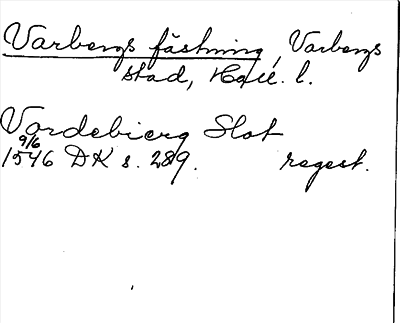 Varbergs fästning, Varbergs
stad, Hall. l.
Vardebierg Slot
9/6
1546 DK s. 289. regest.